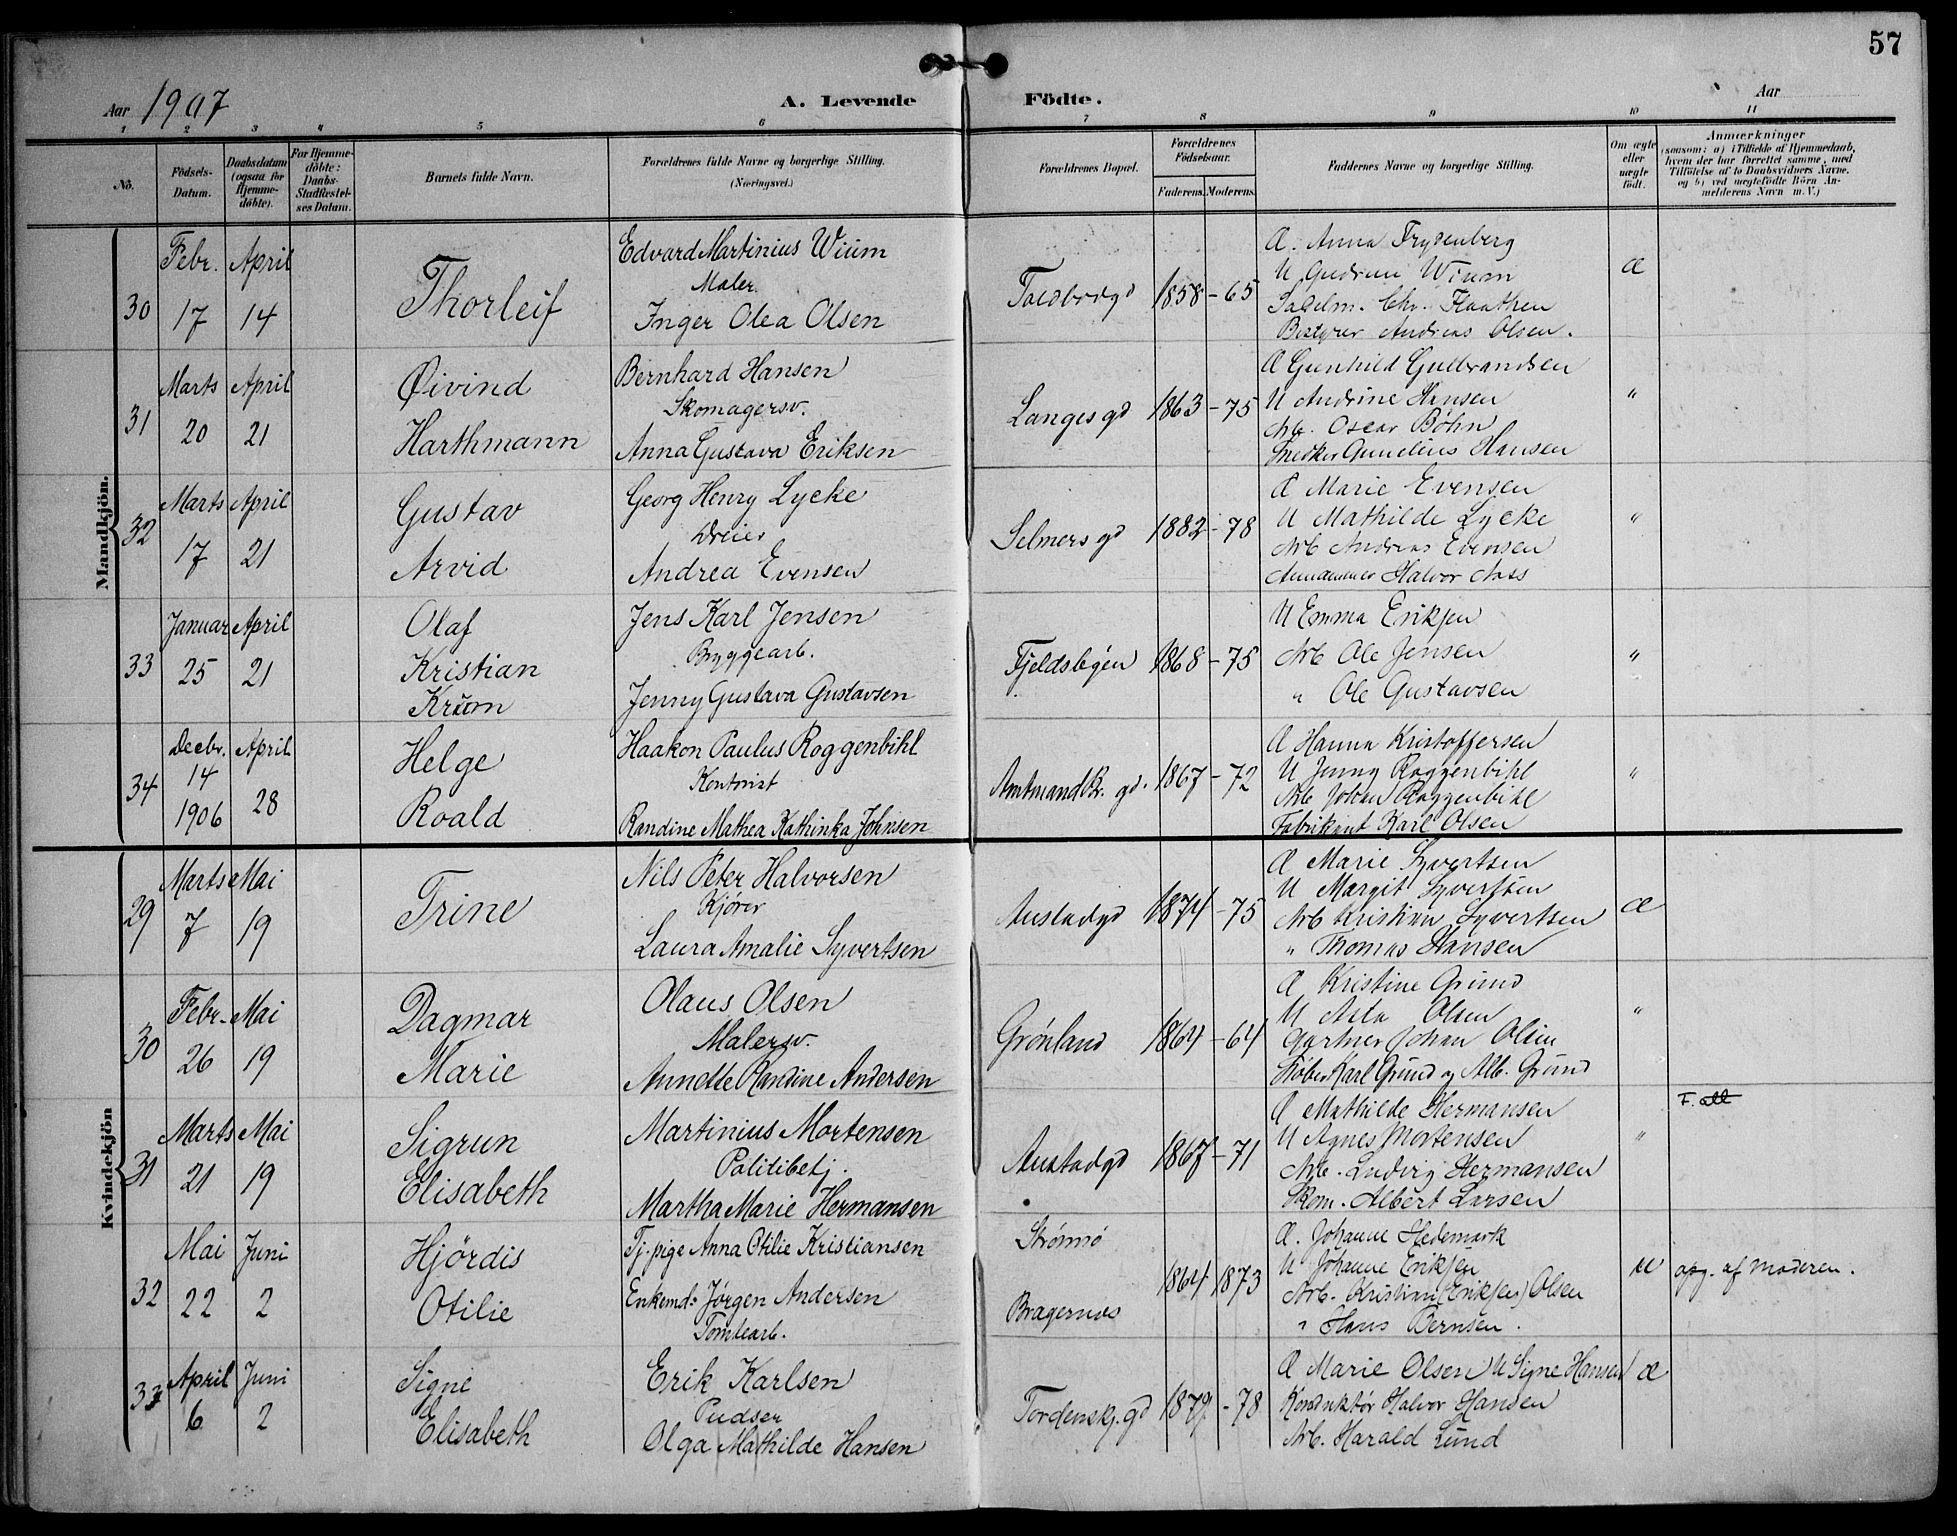 57
Aar 1907
A. Levende Födte.
Aar
1 2 3 4 5 6 7 8 9 10 11
No.
Födsels-Datum.
Daabsdatum (ogsaa for Hjemme-döbte).
For Hjemme-döbte: Daabs-Stadfæstel-ses Datum.
Barnets fulde Navn.
Forældrenes fulde Navne og borgerlige Stilling.
(Næringsvei.)
Forældrenes Bopæl.
Forældrenes Födselsaar.
Faderens. Moderens.
Faddernes Navne og borgerlige Stilling.
Om ægte eller uægte födt.
Anmærkninger
(saasom: a) i Tilfælde af Hjemmedaab, hvem der har forrettet samme, med Tilföielse af to Daabsvidners Navne. og b) ved uægtefödte Börn An-melderens Navn m. V.)
Mandkjön.
30
Febr. 17
April 14
Thorleif
Edvard Martinius Wium
Maler
Inger Olea Olsen
Toldbodgd
1858 - 65
Æ. Anna Frydenberg
U Gudrun Wium
Sadelm. Chr. Flaathen
Bestyrer Andreas Olsen.
æ
31
Marts 20
April 21
Øivind
Harthmann
Bernhard Hansen
Skomagersv.
Anna Gustava Eriksen
Langesgd
1863 - 75
Æ Gunhild Gulbrandsen
U Andrine Hansen
Arb. Oscar Bøhn
Snedker Gunelius Hansen
"
32
Marts 17
April 21
Gustav
Arvid
Georg Henry Lycke
Dreier
Andrea Evensen
Selmersgd
1882 - 78
Æ Marie Evensen
U Mathilde Lycke
Arb Andreas Evensen
Halvor Aass
"
33
Januar 25
April 21
Olaf
Kristian
Krüm
Jens Karl Jensen
Bryggearb.
Jenny Gustava Gustavsen
Fjeldsbyen
1868 - 75
U Emma Eriksen
Arb Ole Jensen
" Ole Gustavsen
"
34
Decbr. 14 1906
April 28
Helge
Roald
Haakon Paulus Roggenbihl
Kontorist
Randine Mathea Kathinka Johnsen
Amtmand Bl. gd.
1867 - 72
Æ Hanna Kristoffersen
U Jenny Roggenbihl
Arb Johan Roggenbihl
Fabrikant Karl Olsen
"
Kvindekjön
29
Marts 7
Mai 19
Trine
Nils Peter Halvorsen
Kjører
Laura Amalie Syvertsen
Austadgd
1874 - 75
Æ Marie Syvertsen
U Margit Syvertsen
Arb Kristian Syvertsen
" Thomas Hansen
æ
30
Febr. 26
Mai 19
Dagmar
Marie
Olaus Olsen
Malersv.
Annette Randine Andersen
Grønland
1864 - 64
Æ Kristine Grund
U Asta Olsen
Gartner Johan Olsen
Støber Karl Grund og Alb. Grund
"
31
Marts 21
Mai 19
Sigrun
Elisabeth
Martinius Mortensen
Politibetj.
Martha Marie Hermansen
Austadgd
1867 - 71
Æ Mathilde Hermansen
U Agnes Mortensen
Arb. Ludvig Hermansen
Skom. Albert Larsen
"
F. att
32
Mai 22
Juni 2
Hjördis
Otilie
Tj.pige Anna Otilie Kristiansen
Enkemd: Jørgen Andersen
Tomtearb.
Strømsø
Bragernæs
1864 1873
Æ. Johanne Hedemark
U Johanne Eriksen
Arb. Kristian (Eriksen) Olsen
" Hans Berntsen.
u
opg. af Moderen.
33
April 6
Juni 2
Signe
Elisabeth
Erik Karlsen
Pudser
Olga Mathilde Hansen
Tordenskj.gd
1879 - 78
Æ Marie Olsen U Signe Hansen
Konduktør Halvor Hansen
Arb. Harald Lund
æ